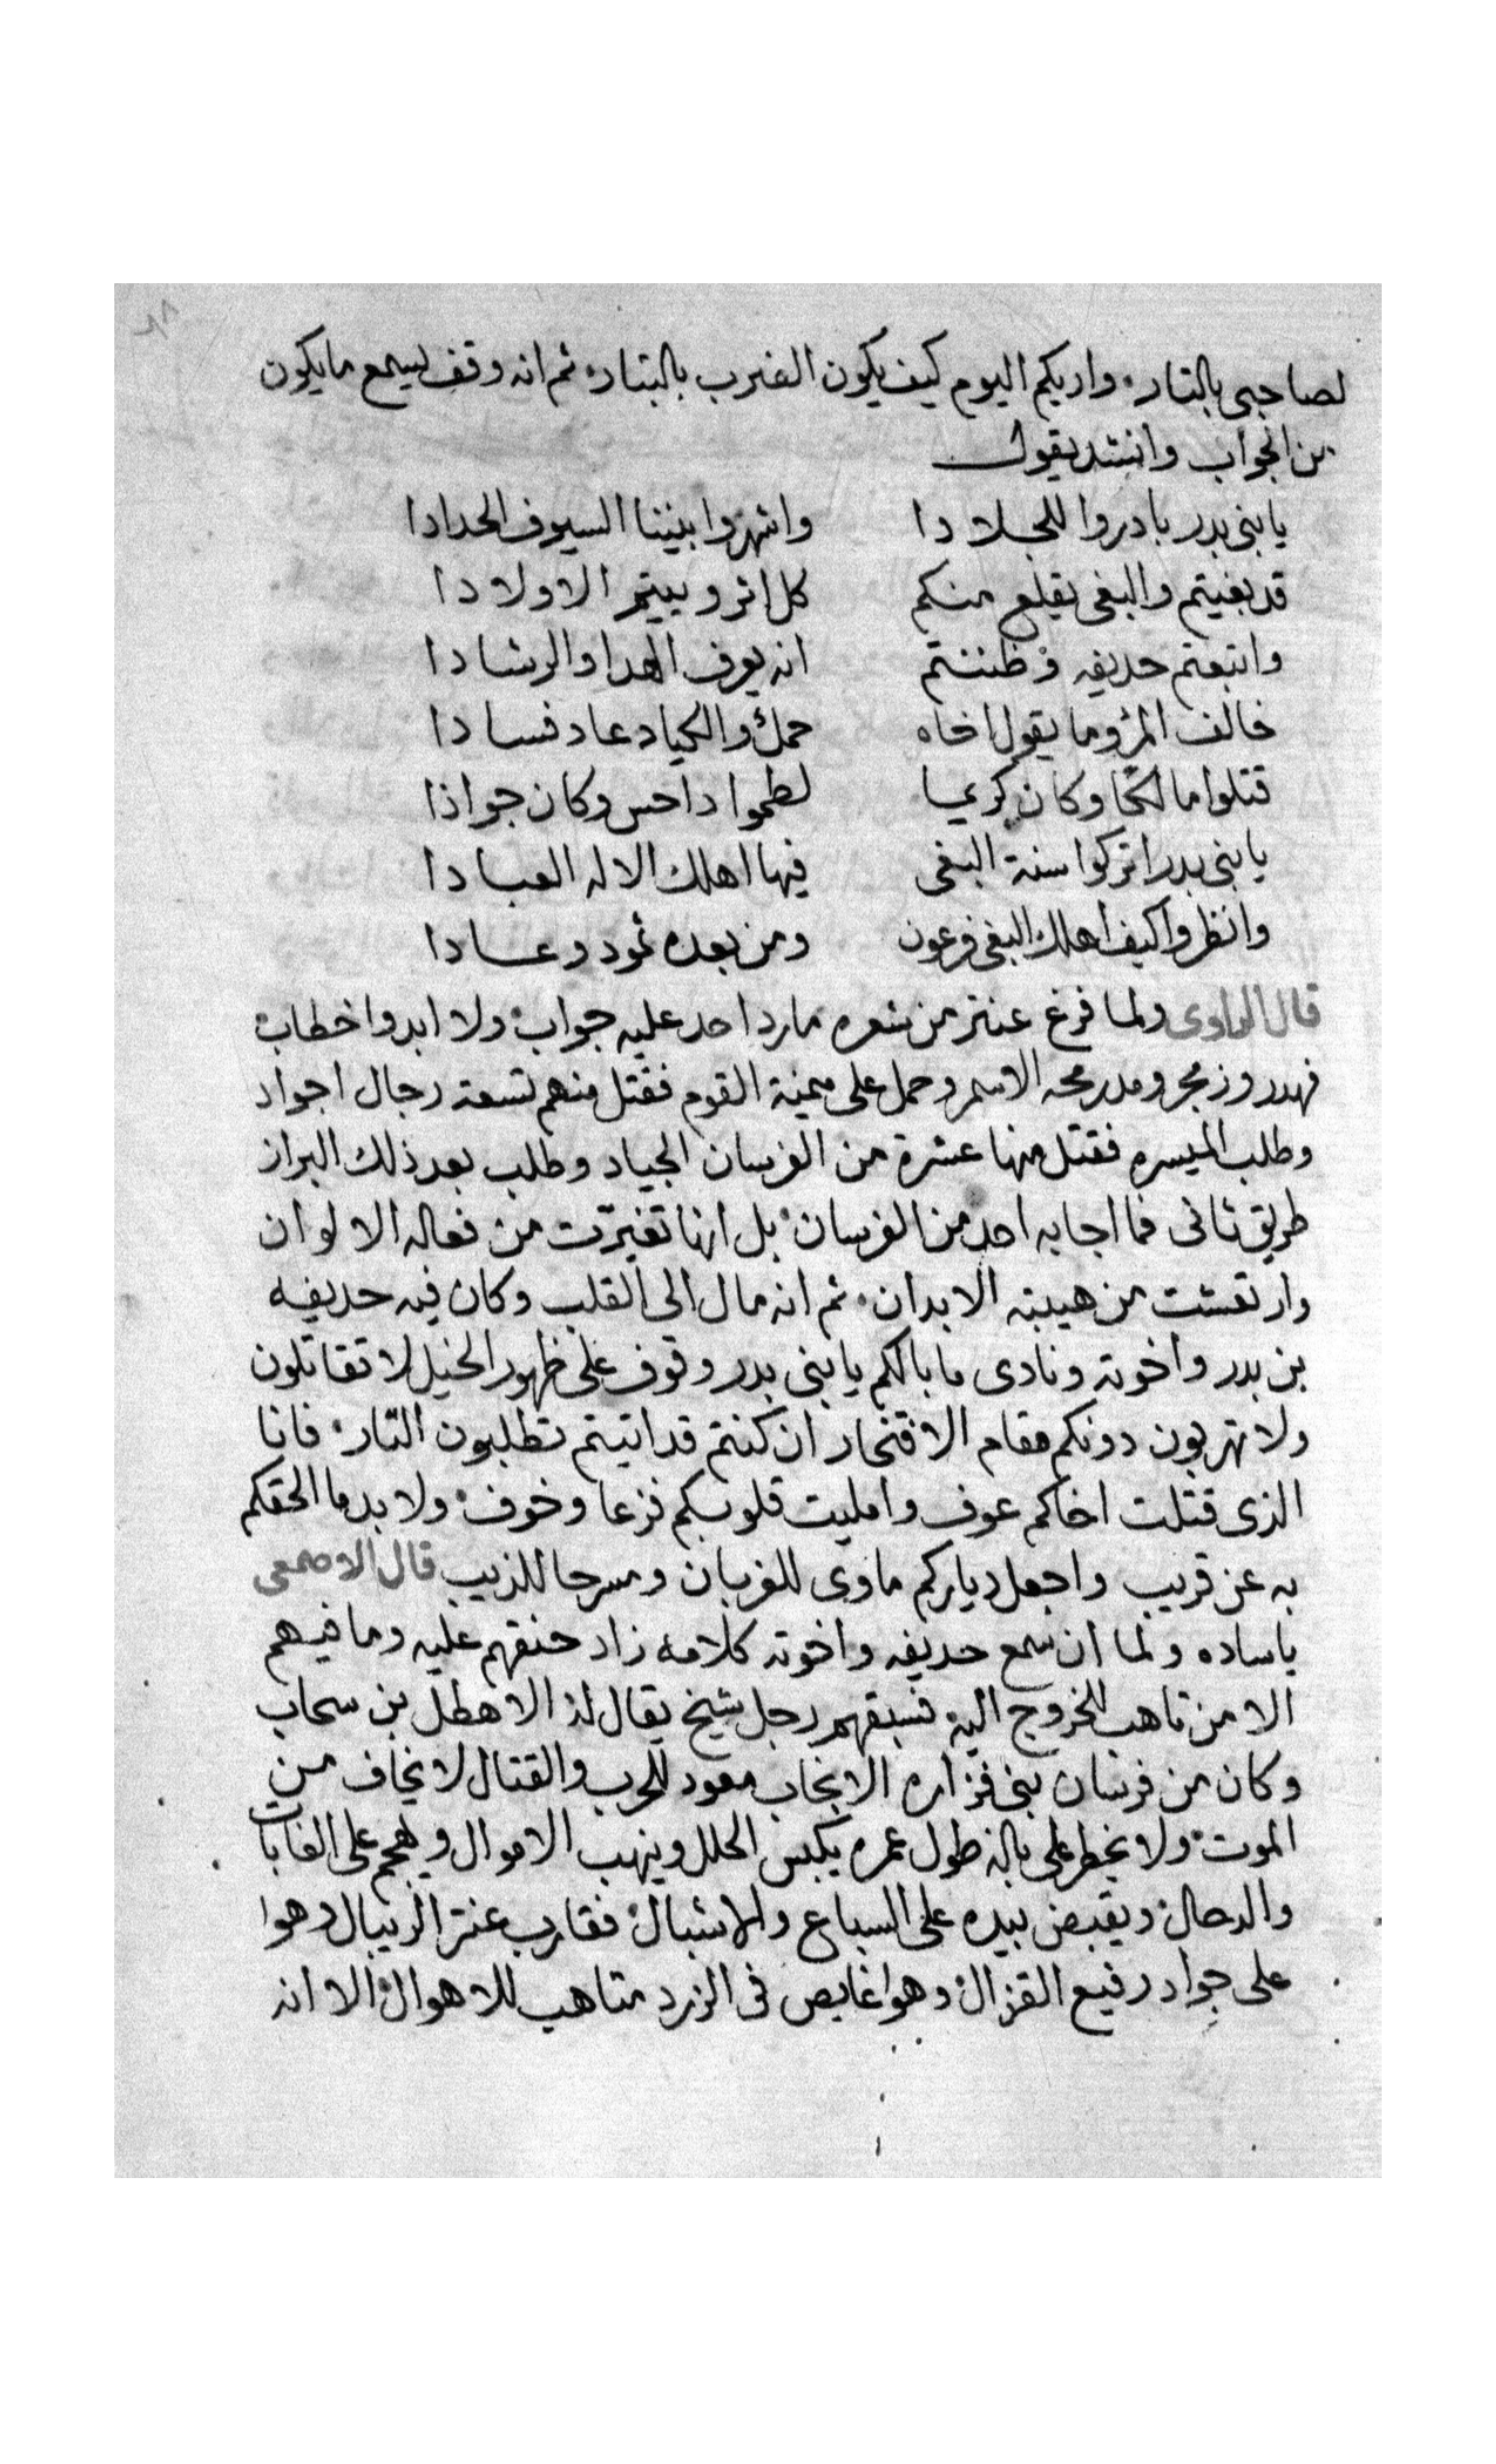 ٦٨
لصاحبى بالتار، واريكم اليوم كيف يكون الضرب بالبتار، ثم انه وقف ليسمع ما يكون
من الجواب وانشد يقول
يا بنى بدر بادروا للجلادا واشهروا بيننا السيوف الحدادا
قد بغيتم والبغى يقلع منكم كل اثر وييتم الاولادا
واتبعتم حديفه وظننتم انه يعرف الهدا والرشادا
خالف المرؤ ما يقول اخاه حمل والحياد عاد فسادا
قتلوا مالكا وكان كريما لطموا داحس وكان جواذا
يا بنى بدر اتركوا سنة البغى فيها اهلك الاله العبادا
وانظروا كيف اهلك البغى فرعون ومن بعده ثمود وعادا
قال الراوى ولما فرغ عنتر من شعره ما رد احد عليه جواب، ولا ابدوا خطاب،
فهدر وزمجر ومد رمحه الاسمر وحمل على ميمنة القوم فقتل منهم تسعة رجال اجواد
وطلب الميسره فقتل منها عشرة من الفرسان الجياد وطلب بعد ذلك البراز
طريق ثانى فما اجابه احد من الفرسان، بل انها تغيرت من فعاله الالوان
وارتعشت من هيبته الابدان، ثم انه مال الى القلب وكان فيه حديفه
بن بدر واخوته ونادى ما بالكم يا بنى بدر وقوف على ظهور الخيل لا تقاتلون
ولا تهربون دونكم مقام الافتخار ان كنتم قد اتيتم تطلبون التار، فانا
الذى قتلت اخاكم عوف وامليت قلوبكم فزعا وخوف، ولا بد ما الحقكم
به عن قريب واجعل دياركم ماوى للغربان ومسرحا للذيب قال الاصمعى
ياساده ولما ان سمع حديفه واخوته كلامه زاد حنقهم عليه وما فيهم
الا من تاهب للخروج اليه فسبقهم رجل شيخ يقال له الاهطل بن سحاب
وكان من فرسان بنى فزاره الانجاب معود للحرب والقتال لا يخاف من
الموت، ولا يخطر على باله طول عمره يكبس الحلل وينهب الاموال ويهجم على الغابات
والدحال، ويقبض بيده على السباع والاشبال، فقارب عنتر الريبال وهوا
على جواد رفيع القزال، وهوا غايص فى الزرد متاهب للاهوال، الا انه